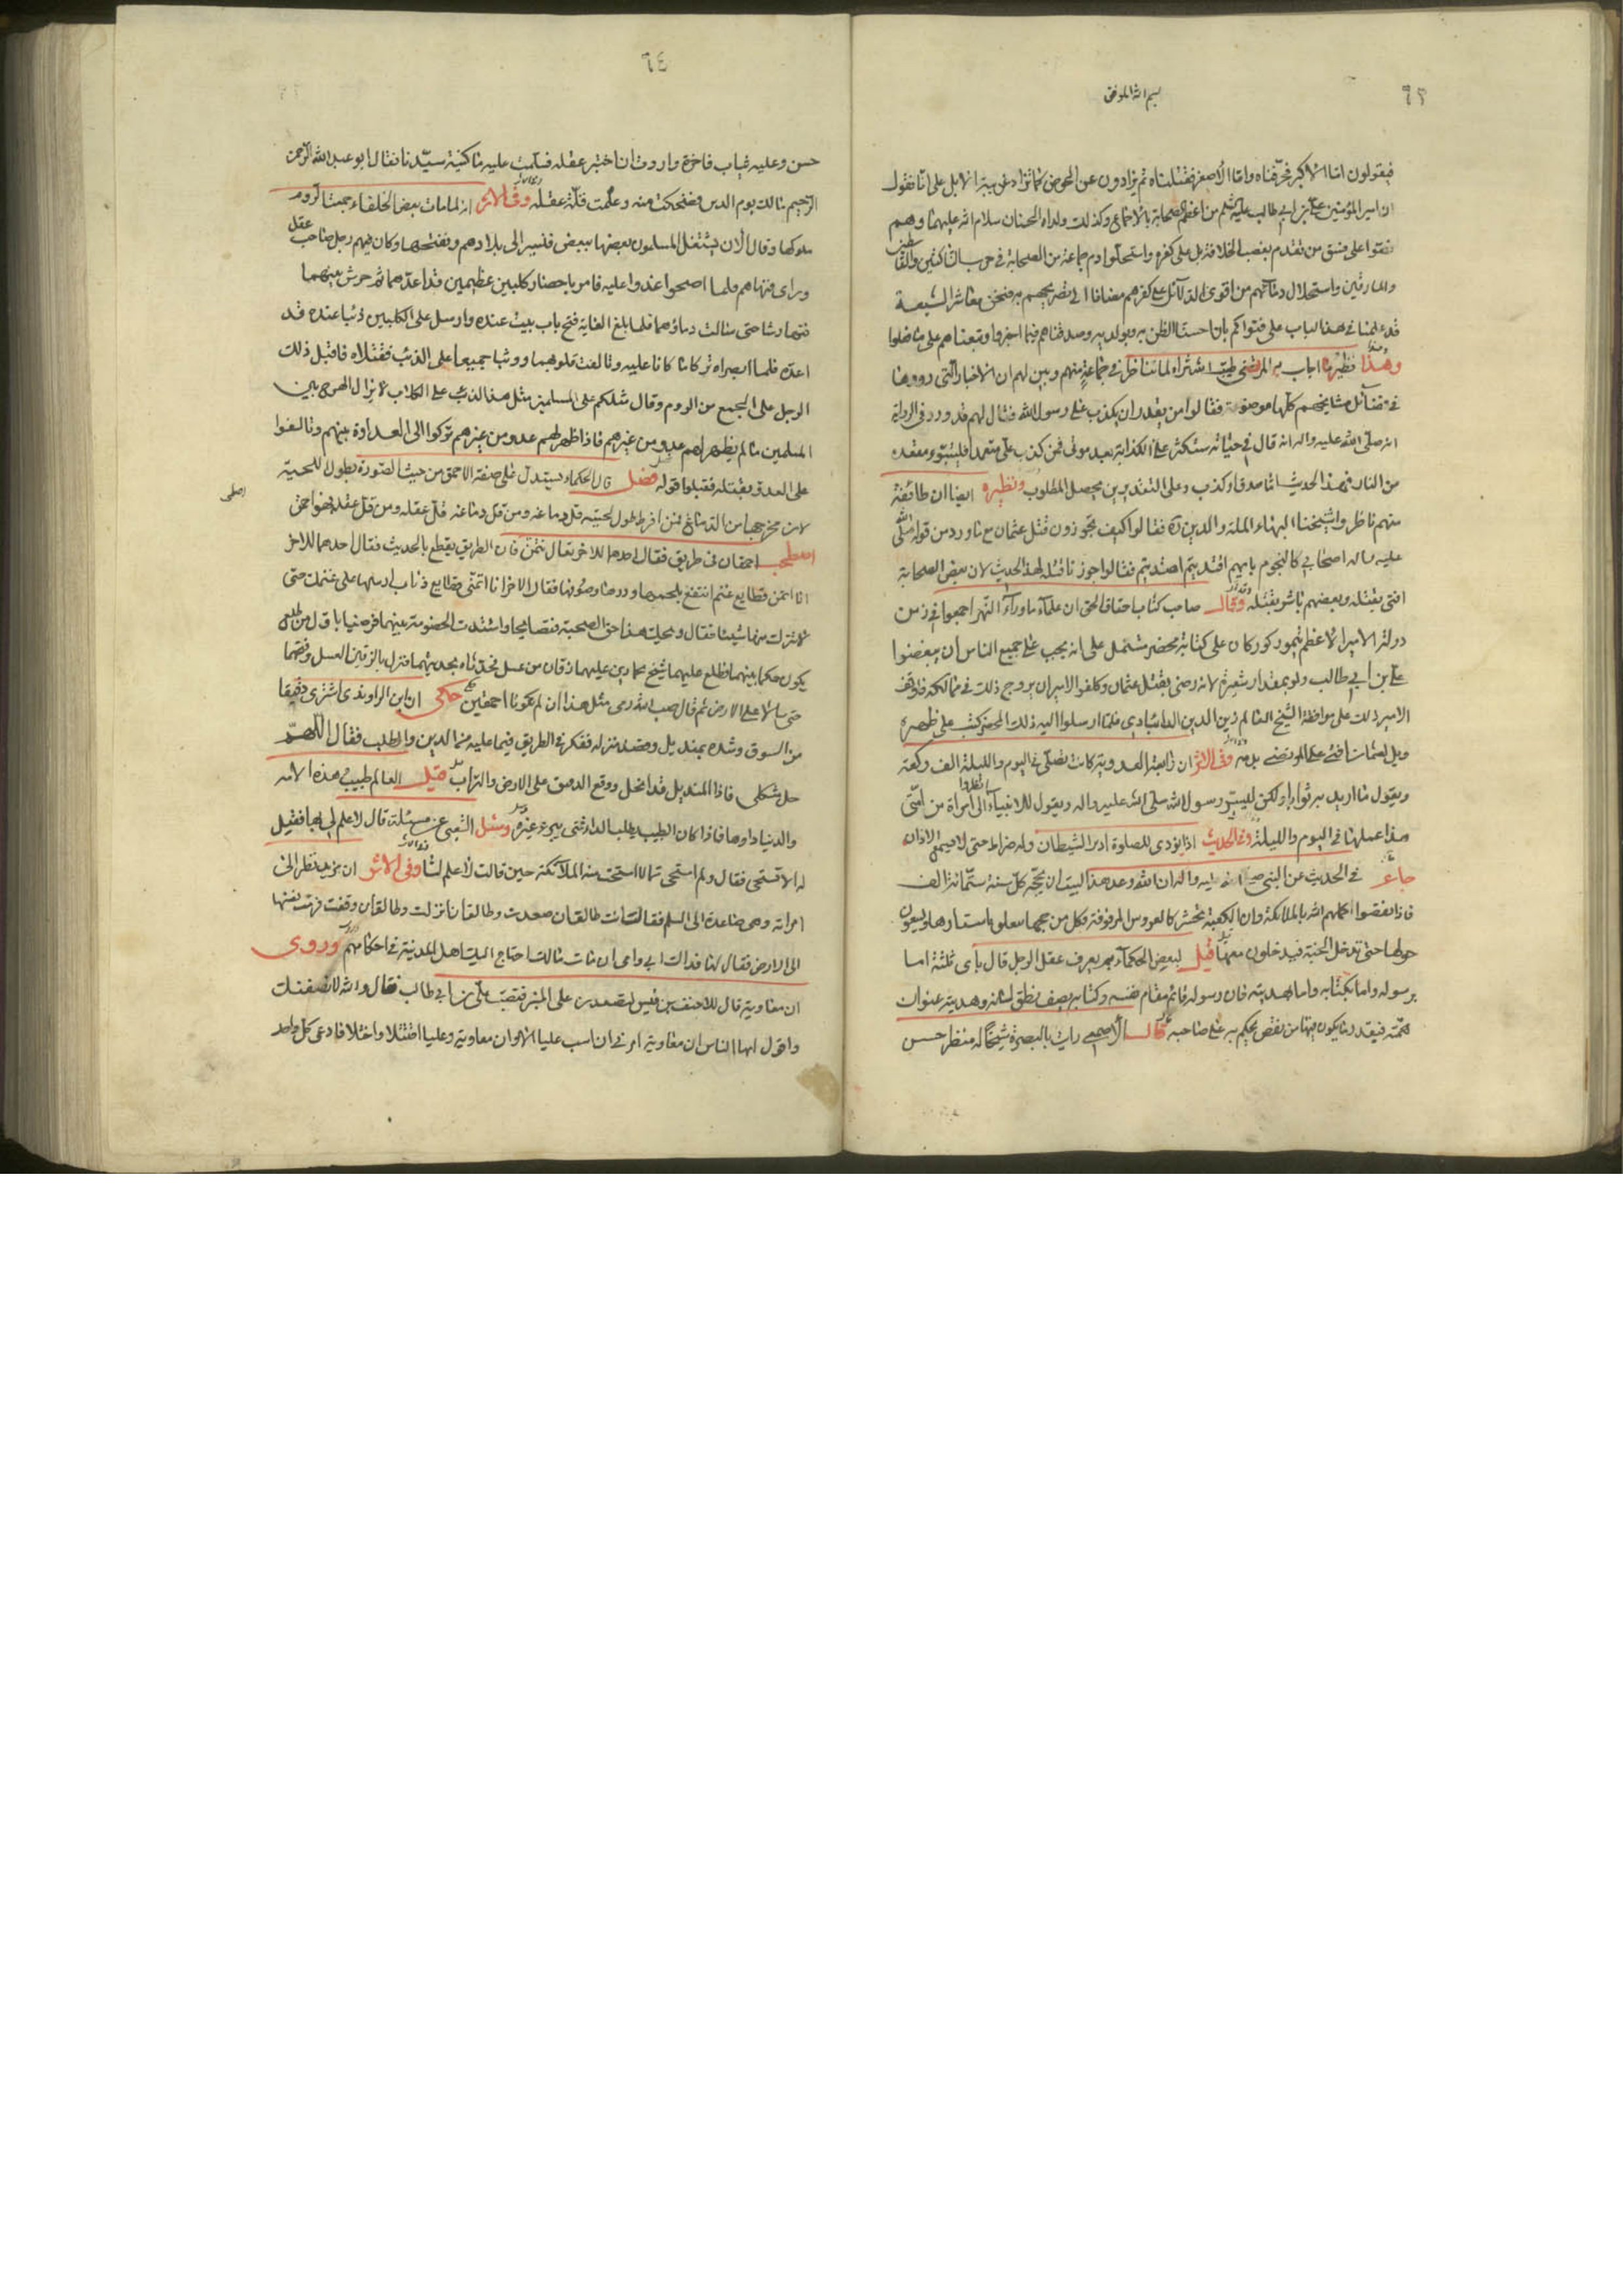 ٦٣
بسم الله الموفق
فيقولون اما الاكبر فحرفناه واما الاصغر فقتلناه ثم يزادون عن الحوض كما تزاد غريبة الابل على انا نقول
ان امير المؤمنين علي بن ابي طالب عليه السلم من اعظم الصحابة بالاجماع وكذلك ولداه الحسنان سلام الله عليهما وهم
نصوا على فسق من تقدم بغصب الخلافة بل على كفره واستحلوا دم جماعة من الصحابة في حرب الناكثين والقاسطين
والمارقين واستحلال دمائهم من اقوى الدلائل على كفرهم مضافا الى تصريحهم به فنحن معاشر الشيعة
قد عملنا في هذا الباب على فتواكم بان احسنا الظن به وبولديه وصدقناهم فيما اخبروا وتبعناهم على ما فعلوا
وهذا نظير ما اجاب به المرتضى طيب الله ثراه لما تناظر في جماعة منهم وبين لهم ان الاخبار التي رووها
في فضائل مشايخهم كلها موضوعة فقالوا من يقدر ان يكذب على رسول الله فقال لهم قد ورد في الرواية
انه صلى الله عليه واله انه قال في حياته ستكثر علي الكذابة بعد موتي فمن كذب علي متعمدا فليتبوء مقعده
من النار فهذا الحديث اما صدق او كذب وعلى التقديرين يحصل المطلوب ونظيره ايضا ان طائفة
منهم ناظروا شيخنا البهاء الملة والدين ره فقالوا كيف تجوزون قتل عثمان مع ما ورد من قوله صلى الله
عليه واله اصحابي كالنجوم بايهم اقتديتم اهتديتم فقالوا جوزنا قتله لهذا الحديث لان بعض الصحابة
افتى بقتله وبعضهم باشر بقتله وقال صاحب كتاب احقاق الحق ان علماء ما وراء النهر اجمعوا في زمن
دولة الامير الاعظم تيمور كوركان على كتابة محضر مشتمل على انه يجب على جميع الناس ان يبغضوا
علي بن ابي طالب ولو بمقدار شعيرة لانه رضي بقتل عثمان وكلفوا الامير ان يروج ذلك في ممالكه فاوقف
الامير ذلك على موافقة الشيخ العالم زين الدين التائبادي فلما ارسلوا اليه ذلك المحضر كتب على ظهره
ويل لعثمان افتى علي المرتضى بدمه وفي الاثر ان رابعة العدوية كانت تصلي في اليوم والليلة الف ركعة
وتقول ما اريد به ثوابا ولكن ليسر رسول الله صلى الله عليه واله ويقول للانبياء انظروا الى امراة من امتي
هذا عملها في اليوم والليلة وفي الحديث اذا نودي للصلوة ادبر الشيطان وله ضراط حتى لا يسمع الاذان
جاء في الحديث عن النبي صلى الله عليه واله ان الله وعد هذا البيت ان يحجه كل سنة ستمائة الف
فاذا نقصوا اكملهم الله بالملائكة وان الكعبة تحشر كالعروس المزفوفة فكل من حجها معلق باستارها ويسعون
حولها حتى تدخل الجنة فيدخلون معها قيل لبعض الحكماء بم يعرف عقل الرجل قال باحدى ثلثة اما
برسوله واما بكتابه واما بهديته فان رسوله قائم مقام نفسه وكتابه يصف نطق لسانه وهديته عنوان
همته فبقدر ما يكون فيها من نقص يحكم به على صاحبه قال الاصمعي رايت بالبصرة شيخا له منظر حسن
٦٤
حسن وعليه ثياب فاخرة واردت ان اختبر عقله فسلمت عليه ما كنية سيدنا فقال ابو عبد الله الرحمن
الرحيم مالك يوم الدين فضحكت منه وعلمت قلة عقله وفي الاثر انه لما مات بعض الخلفاء جمعت الروم
ملوكها وقال الان يشتغل المسلمون بعضها ببعض فنسير الى بلادهم ونفتحها وكان فيهم رجل صاحب عقل
وراى فنهاهم فلما اصبحوا غدوا عليه فامر باحضار كلبين عظيمين قد اعدهما ثم حرش بينهما
فتهارشا حتى سالت دماؤهما فلما بلغ الغاية فتح باب بيت عنده وارسل على الكلبين ذئبا عنده قد
اعده فلما ابصراه تركا ما كانا عليه وتالفت قلوبهما ووثبا جميعا على الذئب فقتلاه فاقبل ذلك
الرجل على الجمع من الروم وقال مثلكم على المسلمين مثل هذا الذئب على الكلاب لا يزال الهرج بين
المسلمين ما لم يظهر لهم عدو من غيرهم فاذا ظهر لهم عدو من غيرهم تركوا العداوة بينهم وتالفوا
على العدو بقتله فقبلوا قوله فصل قال الحكماء يستدل على صفة الاحمق من حيث الصورة بطول اللحية
لان مخرجها من الدماغ فمن افرط طول لحيته قل دماغه ومن قل دماغه قل عقله ومن قل عقله فهو احمق
اصطحب احمقان في طريق فقال احدهما للاخر تعال نتمن فان الطريق يقطع بالحديث فقال احدهما للاخر
انا اتمنى قطايع غنم انتفع بلحمها ودرها وصوفها فقال الاخر انا اتمنى قطايع ذئاب ارسلها على غنمك حتى
لا تترك منها شيئا فقال ويحك هذا حق الصحبة فتصايحا واشتدت الخصومة بينهما فرضيا باول من يطلع
يكون حكما بينهما فطلع عليهما شيخ بحمارين عليهما زقان من عسل فحدثاه بحديثهما فنزل بالزقين العسل وفتحهما
حتى سالا على الارض ثم قال صب الله دمي مثل هذا ان لم تكونا احمقين حكي ان ابن الراوندي اشترى دقيقا
من السوق وشده بمنديل وقصد منزله ففكر في الطريق فيما عليه من الدين والطلب فقال اللهم
حل مشكلي فاذا المنديل قد انحل ووقع الدقيق على الارض والتراب قيل العالم طبيب هذه الامه
والدنيا داوها فاذا كان الطبيب يطلب الداء متى يبرء غيره وسئل الشعبي عن مسئلة قال لا علم لي بها فقيل
له الا تستحي فقال ولم استحي مما لا استحت منه الملائكة حين قالت لا علم لنا وفي الاثر ان مزيد نظر الى
امراته وهي صاعدة الى السلم فقال انت طالق ان صعدت وطالق ان نزلت وطالق ان وقفت فرمت نفسها
الى الارض فقال لها فداك ابي وامي ان مات مالك احتاج اليك اهل المدينة في احكامهم وروى
ان معاوية قال للاحنف بن قيس لتصعدن على المنبر فتسب علي بن ابي طالب فقال والله لانصفنك
واقول ايها الناس ان معاوية امرني ان اسب عليا الا وان معاوية وعليا اقتتلا واختلفا فادعى كل واحد